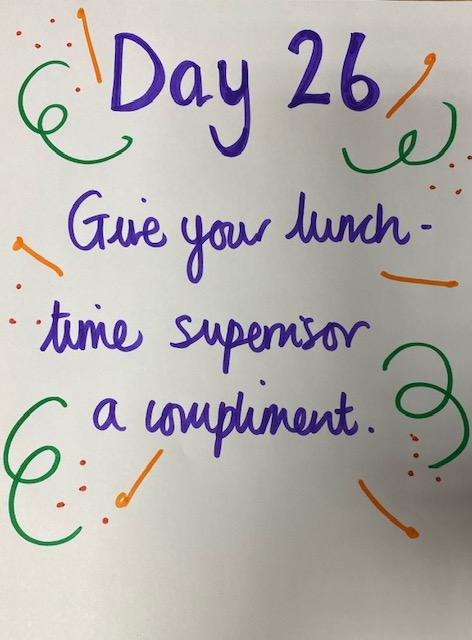 Day 26
Give your lunch-
time supervisor
a compliment.